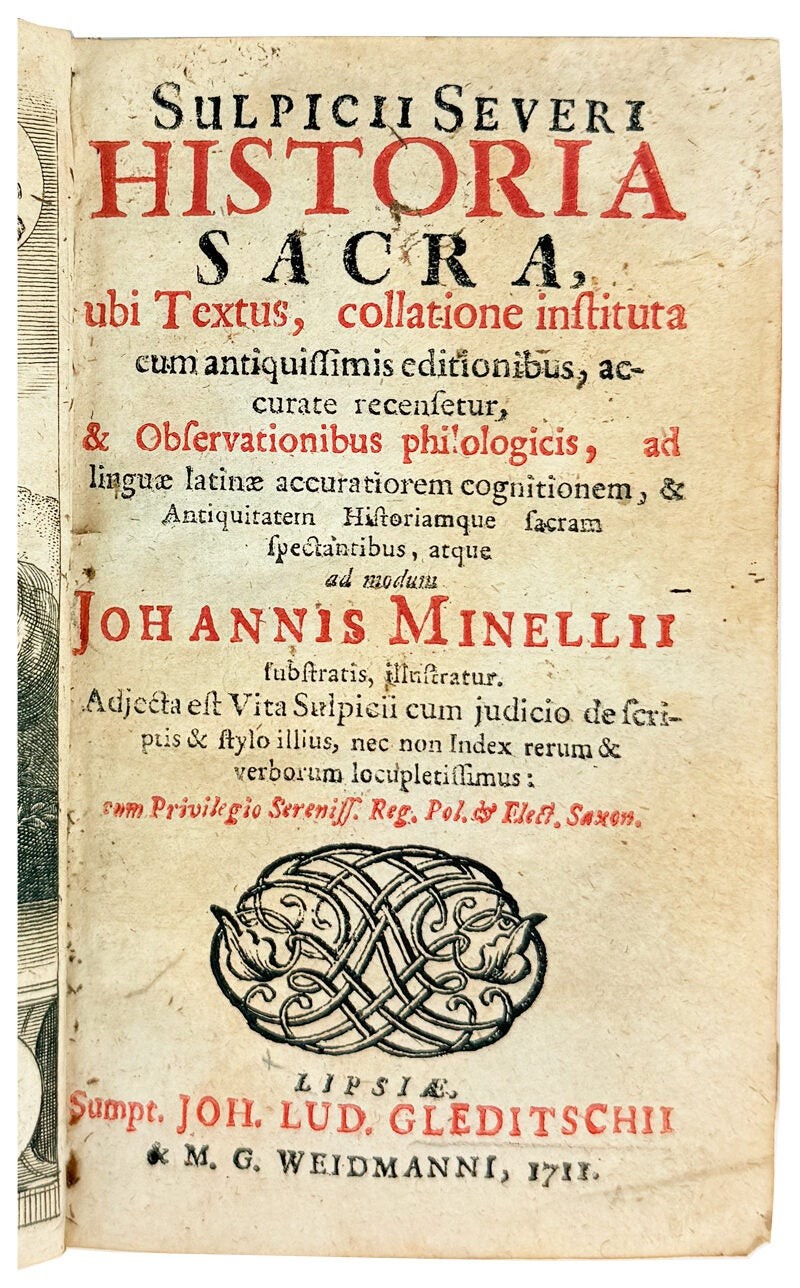 SULPICII SEVERI
HISTORIA
SACRA,
ubi Textus, collatione inſtituta
cum antiquiſſimis editionibus, ac-
curate recenſetur,
& Obſervationibus philologicis, ad
linguæ latinæ accuratiorem cognitionem, &
Antiquitatem Hiſtoriamque ſacram
ſpectantibus, atque
ad modum
JOHANNIS MINELLII
ſubſtratis, illuſtratur.
Adjecta eſt Vita Sulpicii cum judicio de ſcri-
ptis & ſtylo illius, nec non Index rerum &
verborum locupletiſſimus:
cum Privilegio Sereniſſ. Reg. Pol. & Elect. Saxon.
LIPSIÆ,
Sumpt. JOH. LUD. GLEDITSCHII
& M. G. WEIDMANNI, 1711.